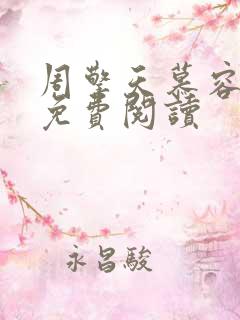 周擎天慕容
免費閱讀
永昌駿